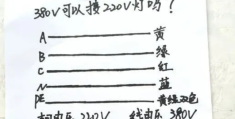 380V可以接220V灯吗?
A 黄
B 绿
C 红
N 蓝
PE 黄绿双色
相电压220V 线电压380V